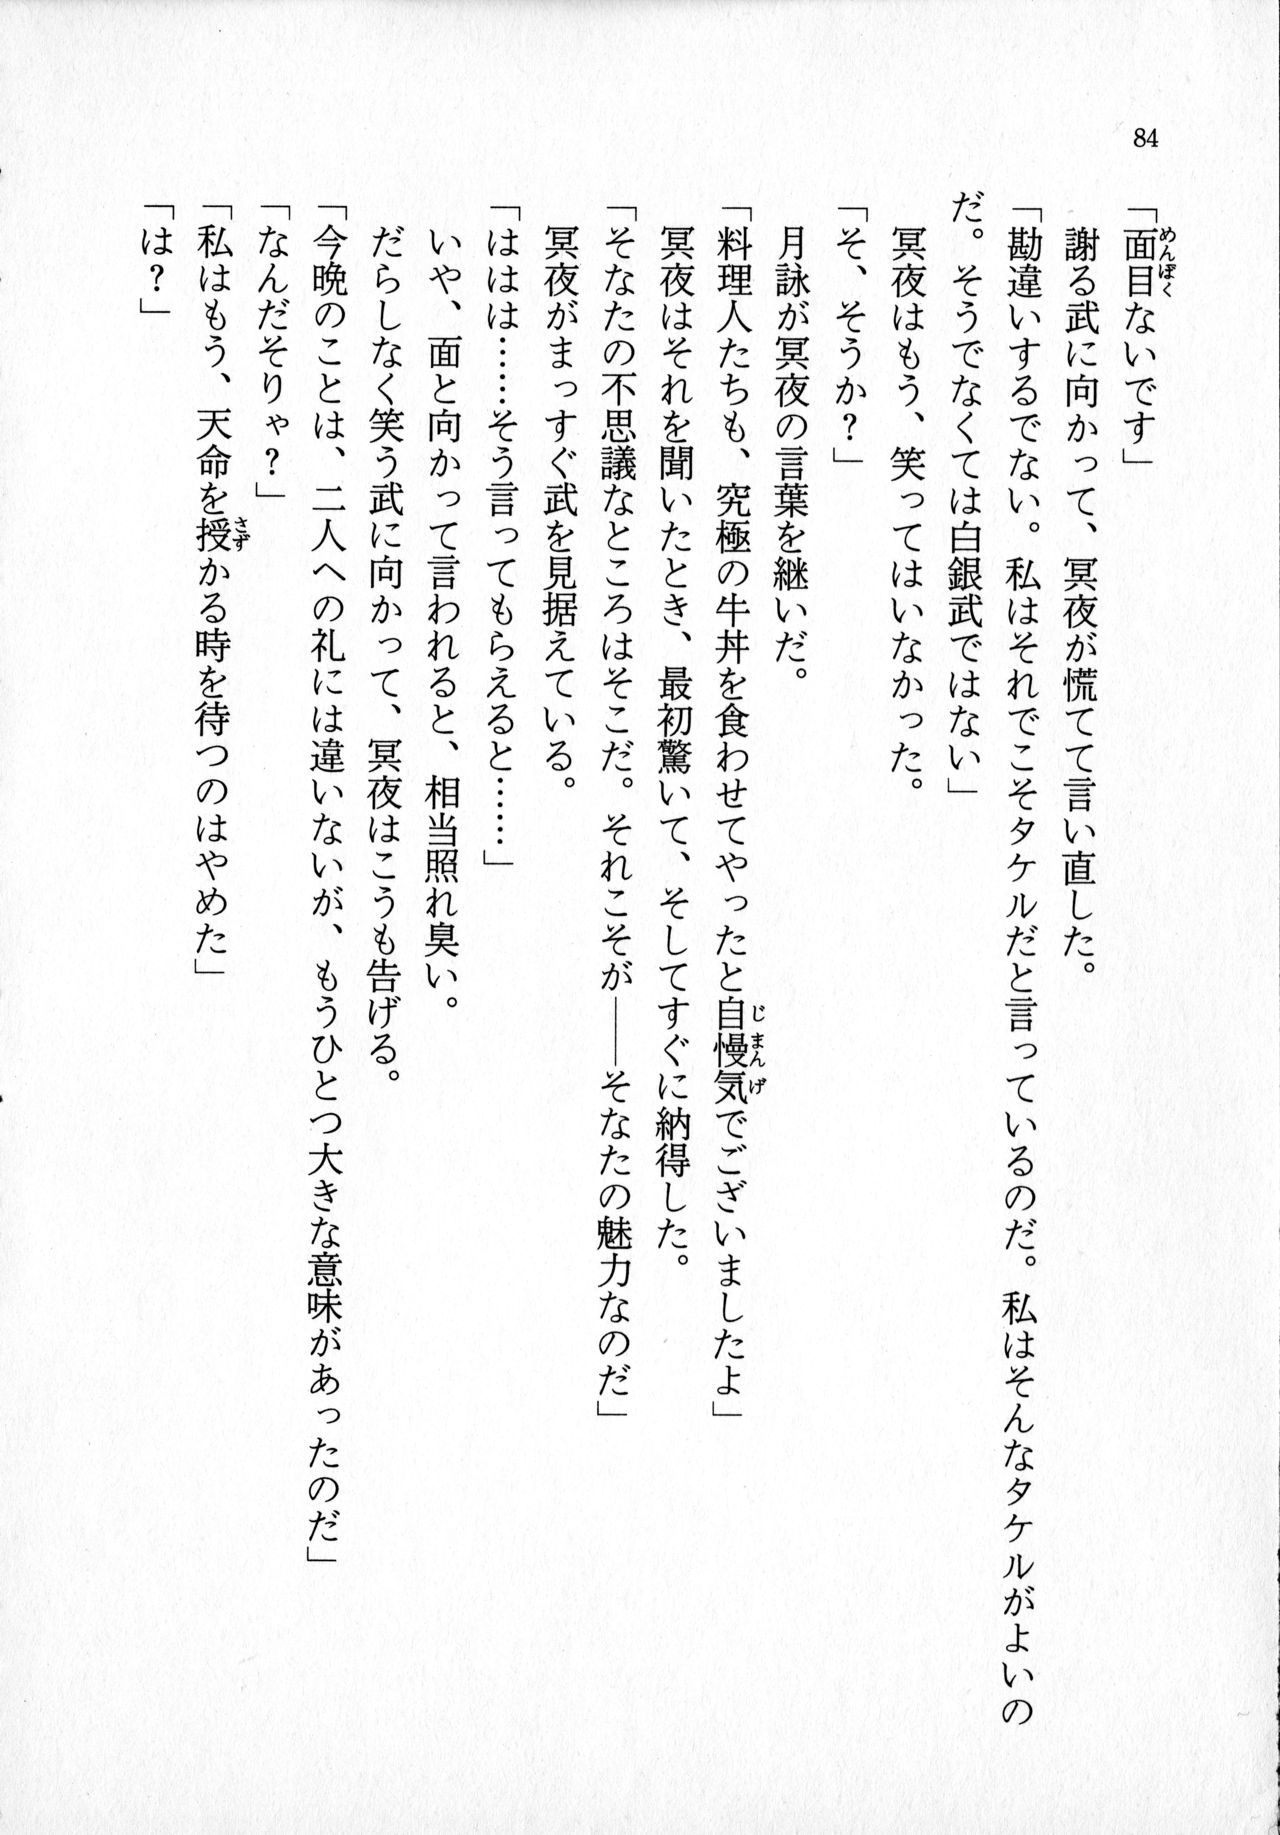 84
「面目ないです」
謝る武に向かって、冥夜が慌てて言い直した。
「勘違いするでない。私はそれでこそタケルだと言っているのだ。私はそんなタケルがよいの
だ。そうでなくては白銀武ではない」
冥夜はもう、笑ってはいなかった。
「そ、そうか？」
月詠が冥夜の言葉を継いだ。
「料理人たちも、究極の牛丼を食わせてやったと自慢気でございましたよ」
冥夜はそれを聞いたとき、最初驚いて、そしてすぐに納得した。
「そなたの不思議なところはそこだ。それこそが――そなたの魅力なのだ」
冥夜がまっすぐ武を見据えている。
「ははは……そう言ってもらえると……」
いや、面と向かって言われると、相当照れ臭い。
だらしなく笑う武に向かって、冥夜はこうも告げる。
「今晩のことは、二人への礼には違いないが、もうひとつ大きな意味があったのだ」
「なんだそりゃ？」
「私はもう、天命を授かる時を待つのはやめた」
「は？」